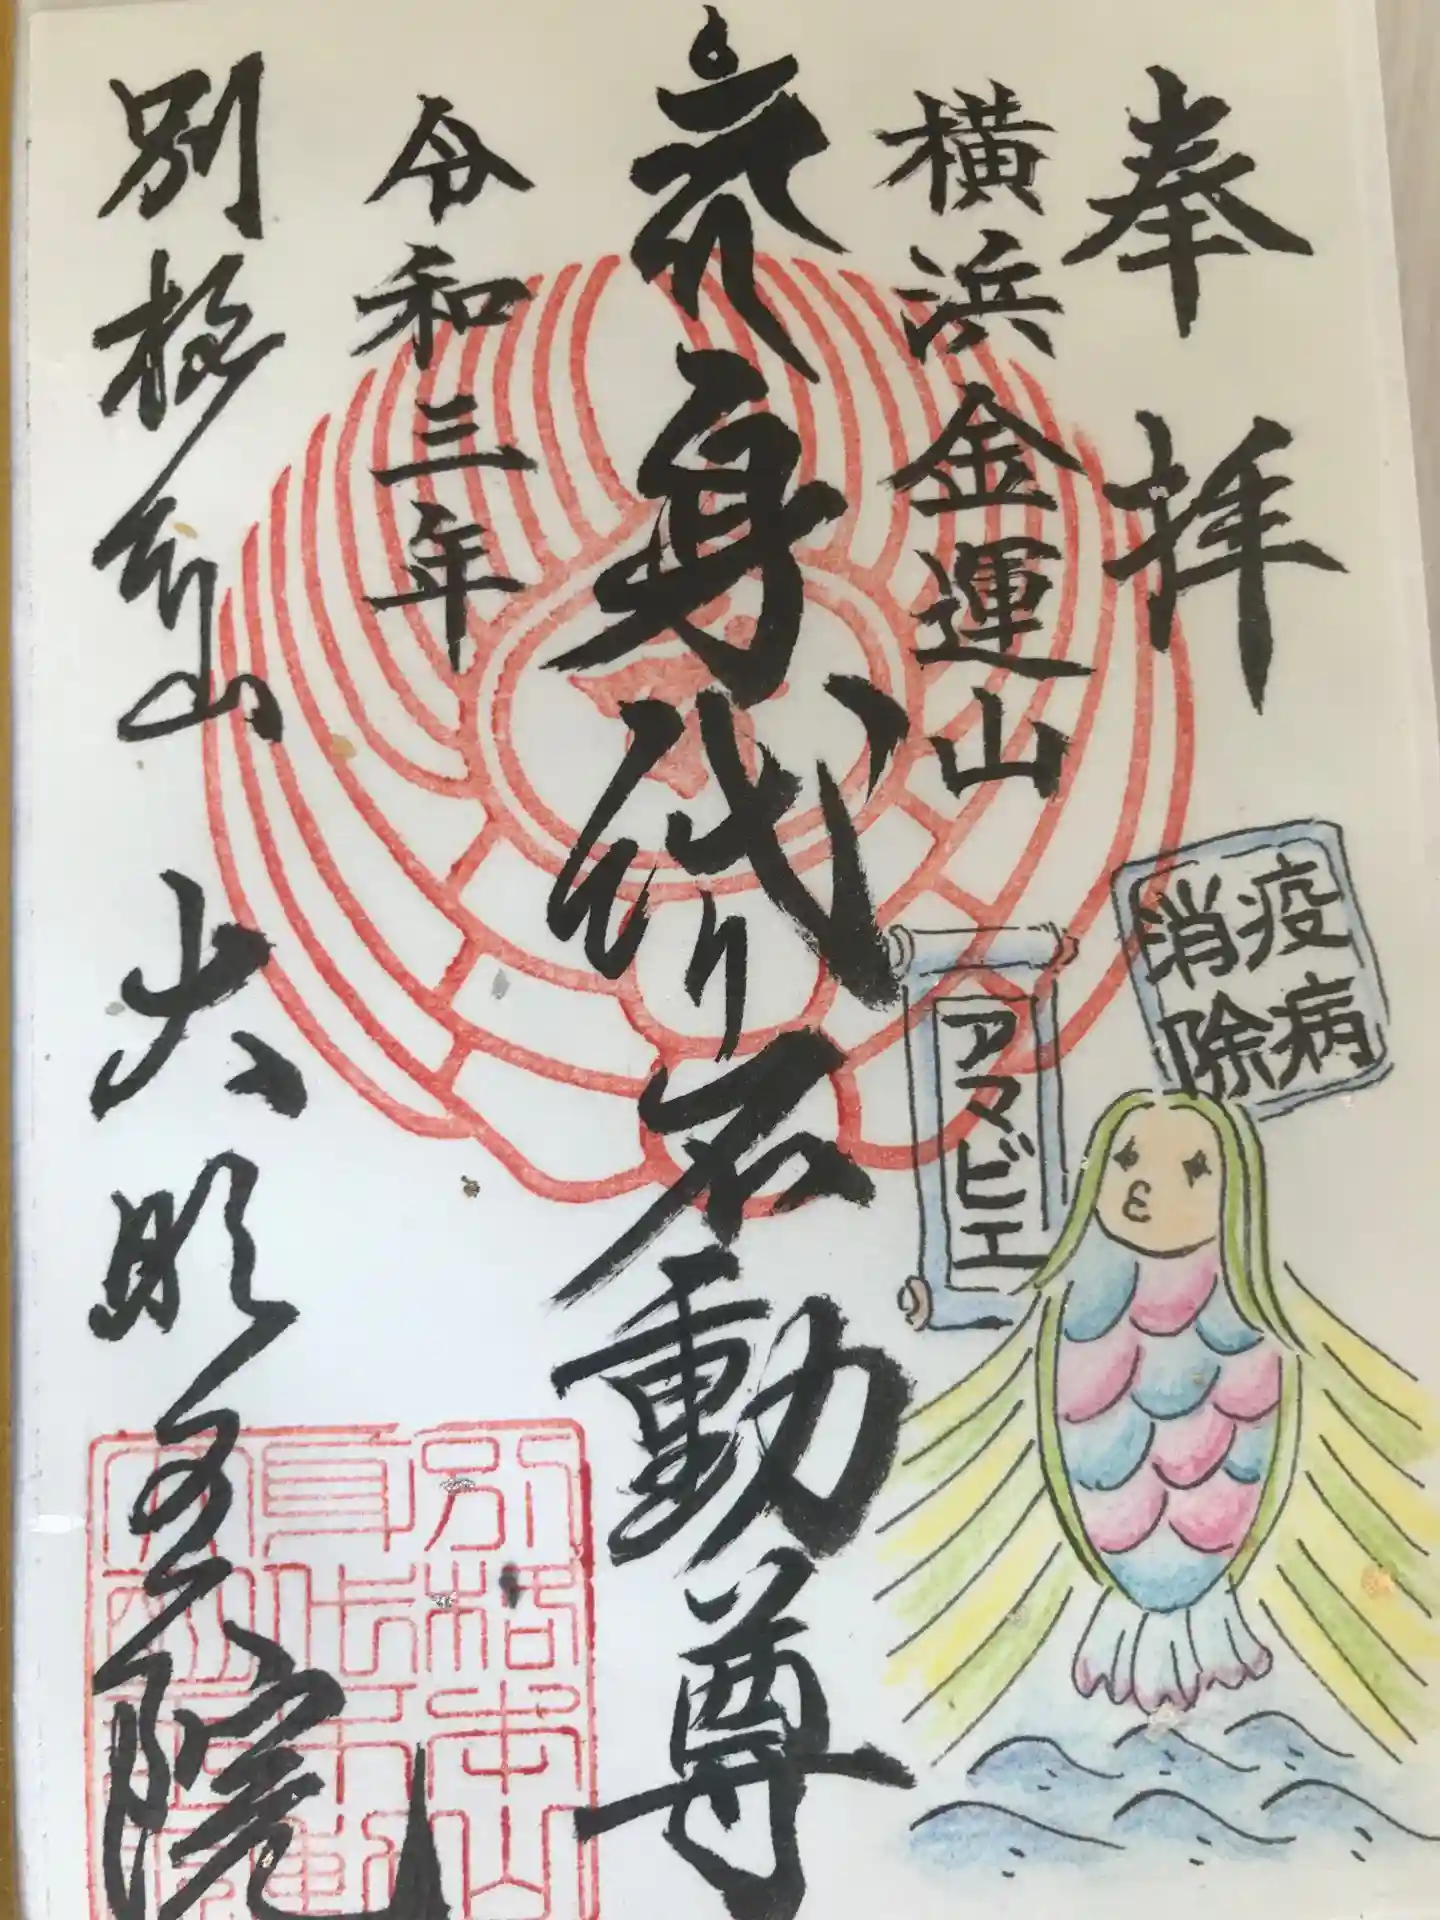 奉拝
横浜金運山
身代り不動尊
令和三年
別格本山 大明王院
疫病
消除
アマビエ
別格本山
身代不動